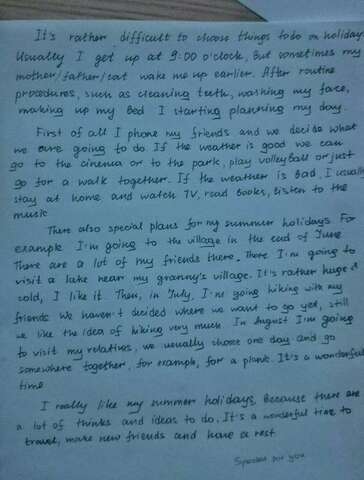 It's rather difficult to choose things to do on holiday
Usually I get up at 9:00 o'clock, But sometimes my
mother/father/cat wake me up earlier. After routine
procedures, such as cleaning teeth, washing my face,
making up my Bed I starting planning my day.
First of all I phone my friends and we decide what
we are going to do. If the weather is good we can
go to the cinema or to the park, play volleyBall or just
go for a walk together. If the weather is Bad, I usually
stay at home and watch TV, read Books, listen to the
music.
There also special plans for my summer holidays. For
example I'm going to the village in the end of June.
There are a lot of my friends there. There I'm going to
visit a lake near my granny's village. It's rather huge &
cold, I like it. Then, in July, I'm going hiking with my
friends. We haven't decided where we want to go yet, still
we like the idea of hiking very much. In August I'm going
to visit my relatives, we usually chose one day and go
somewhere together, for example, for a picnic. It's a wonderful
time.
I really like my summer holidays, Because there are
a lot of thinks and ideas to do. It's a wonderful time to
travel, make new friends and have a rest.
for you